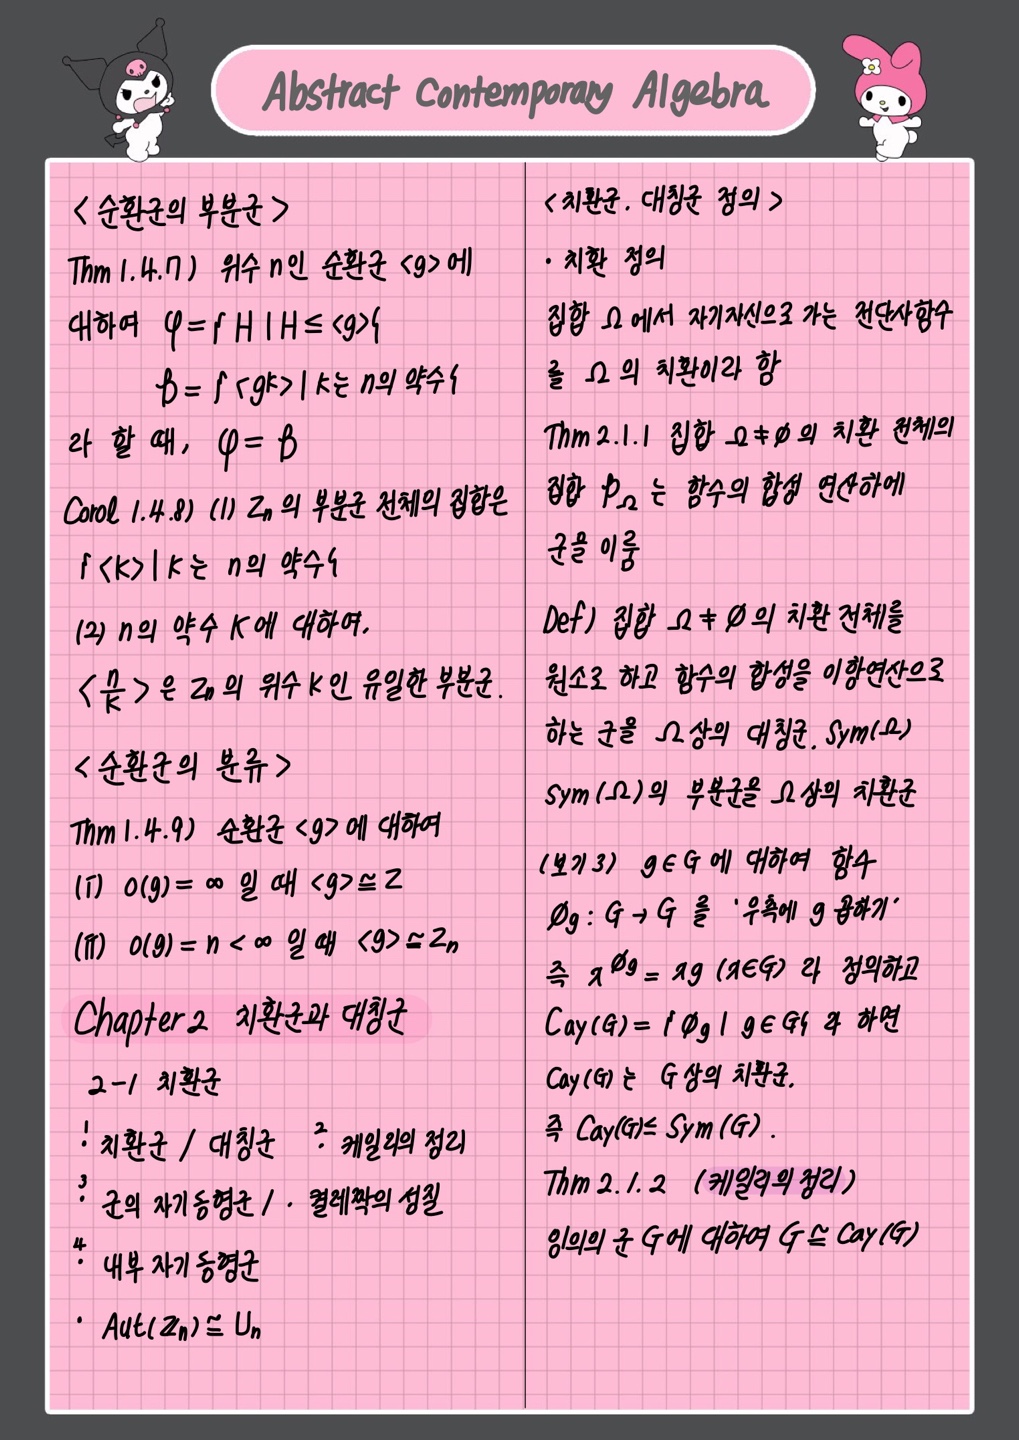 Abstract Contemporary Algebra
< 순환군의 부분군 >
Thm 1.4.7) 위수 n인 순환군 <g>에
대하여 φ = { H | H ≤ <g>}
β = { <gᵏ> | k는 n의 약수}
라 할 때, φ = β
Corol 1.4.8) (1) Zₙ의 부분군 전체의 집합은
{ <k> | k는 n의 약수}
(2) n의 약수 k에 대하여,
< n/k > 은 Zₙ의 위수 k인 유일한 부분군.
< 순환군의 분류 >
Thm 1.4.9) 순환군 <g>에 대하여
(i) o(g) = ∞ 일 때 <g> ≅ Z
(ii) o(g) = n < ∞ 일 때 <g> ≅ Zₙ
Chapter 2 치환군과 대칭군
2-1 치환군
1. 치환군 / 대칭군 2. 케일리의 정리
3. 군의 자기동형군 / · 켤레짝의 성질
4. 내부 자기동형군
· Aut(Zₙ) ≅ Uₙ
< 치환군. 대칭군 정의 >
· 치환 정의
집합 Ω에서 자기자신으로 가는 전단사함수
를 Ω의 치환이라 함
Thm 2.1.1 집합 Ω ≠ ∅의 치환 전체의
집합 P_Ω는 함수의 합성 연산하에
군을 이룸
Def) 집합 Ω ≠ ∅의 치환 전체를
원소로 하고 함수의 합성을 이항연산으로
하는 군을 Ω상의 대칭군. Sym(Ω)
Sym(Ω)의 부분군을 Ω상의 치환군
(보기 3) g∈G에 대하여 함수
Ø_g : G → G 를 '우측에 g 곱하기'
즉 x^Ø_g = xg (x∈G) 라 정의하고
Cay(G) = { Ø_g | g∈G} 라 하면
Cay(G)는 G상의 치환군.
즉 Cay(G) ≤ Sym(G).
Thm 2.1.2 (케일리의 정리)
임의의 군 G에 대하여 G ≅ Cay(G)